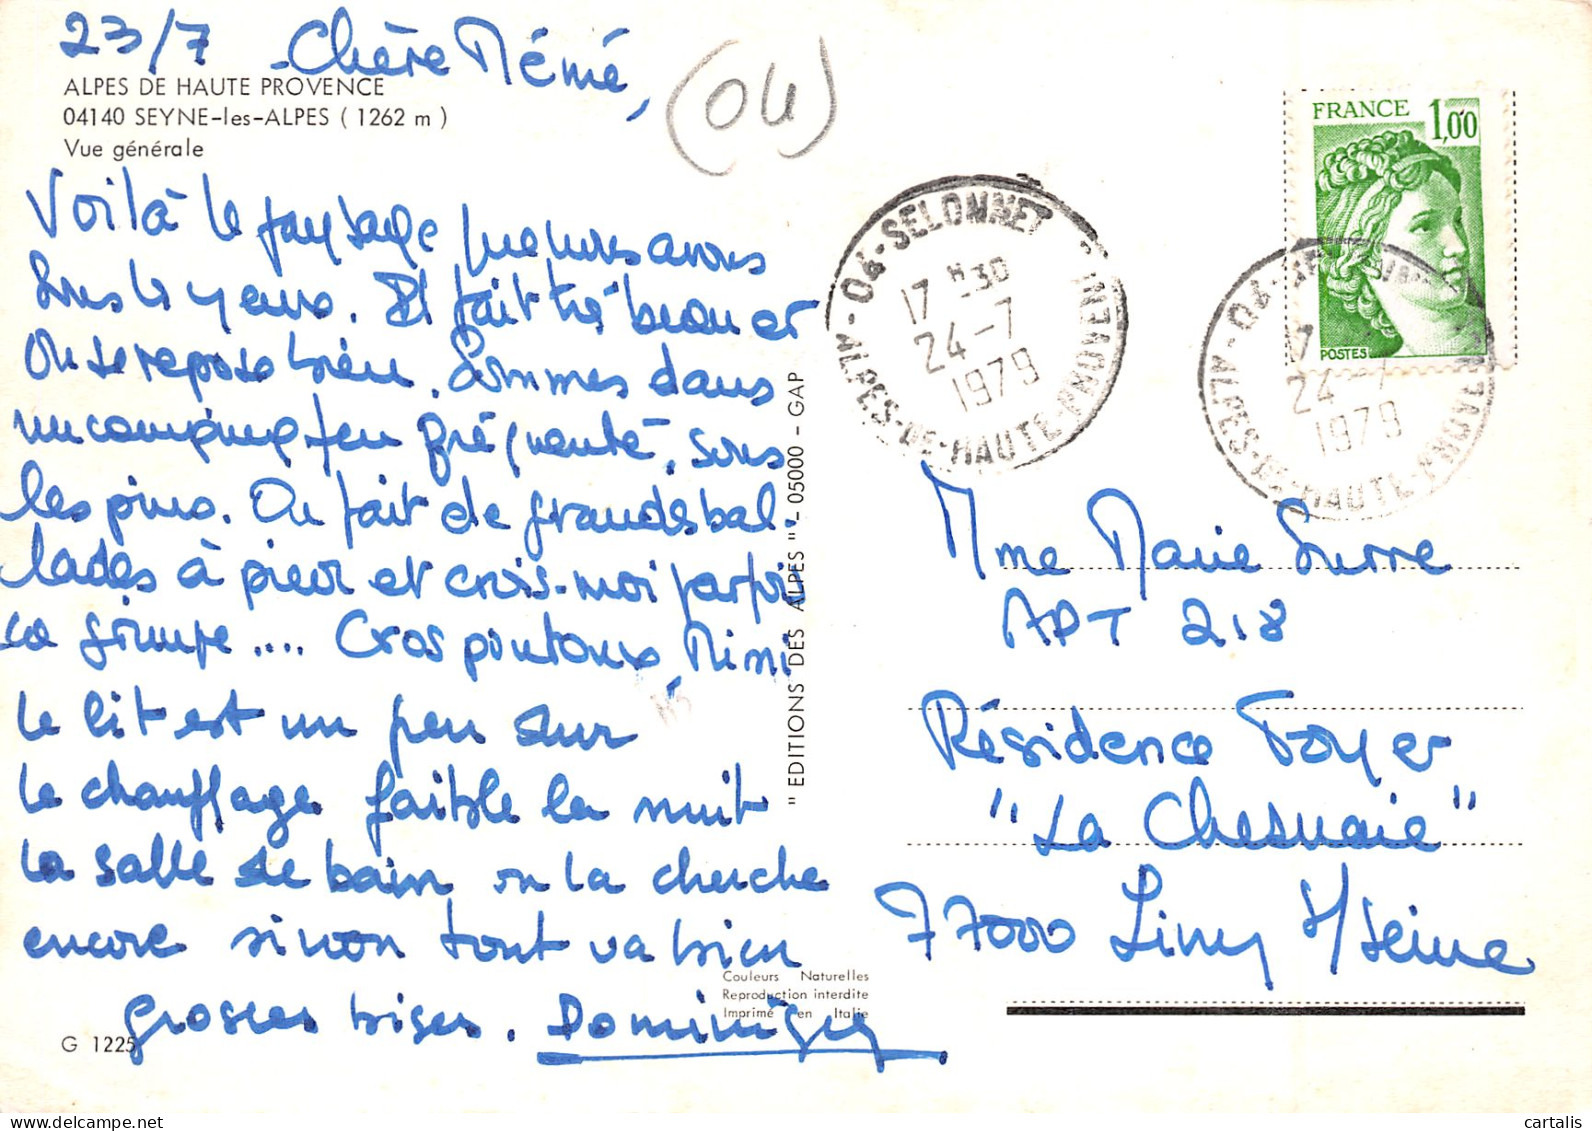 23/7 - Chère Mémé,
(04)
ALPES DE HAUTE PROVENCE
04140 SEYNE-les-ALPES ( 1262 m )
Vue générale
Voilà le paysage que nous avons
sous le yeux. Il fait très beau et
on se repose bien. Sommes dans
un camping peu fréquenté, sous
les pins. On fait de grandes bal-
lades à pied et crois-moi parfois
ca grimpe .... Gros pintous, Mimi
le lit est un peu dur
le chauffage faible la nuit
la salle de bain on la cherche
encore sinon tout va bien
grosses bises. Dominique
G 1225
" EDITIONS DES ALPES " - 05000 - GAP
Couleurs Naturelles
Reproduction interdite
Imprimé en Italie
FRANCE 1,00
POSTES
04 - SELONNET
17 H 30
24 - 7
1979
ALPES-DE-HAUTE-PROVENCE
04 -
17
24 - 7
1979
ALPES-DE-HAUTE-PROVENCE
Mme Marie Surre
APT 218
Résidence Foyer
"La Chesnaie"
77000 Livry S/Seine
cartalis